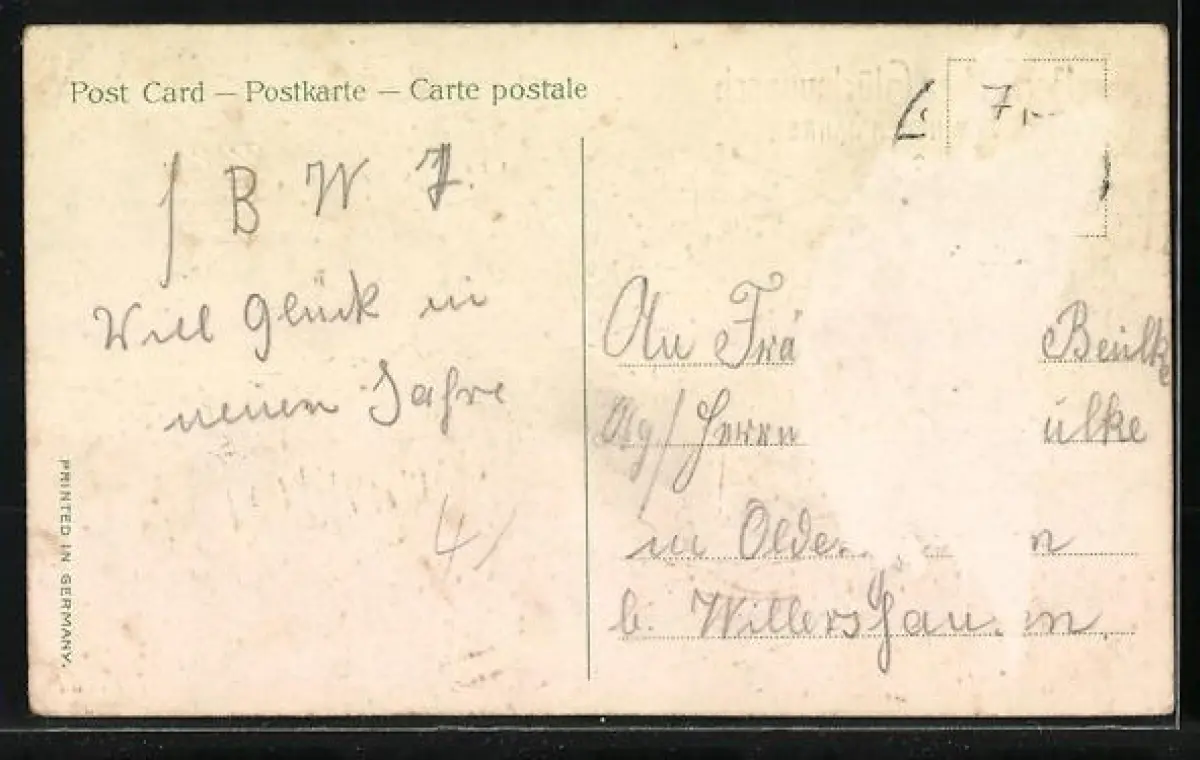 Post Card — Postkarte — Carte postale
B W
Viel Glück in
neuen Jahre
4/
PRINTED IN GERMANY.
7
An Frä Beulke
Adg/ Herrn ulke
in Olden n
b. Willershausen.